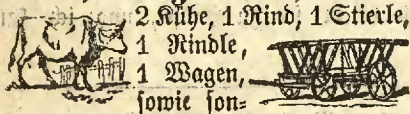 2 Kühe, 1 Rind, 1 Stierle,
1 Rindle,
1 Wagen,
sowie son-